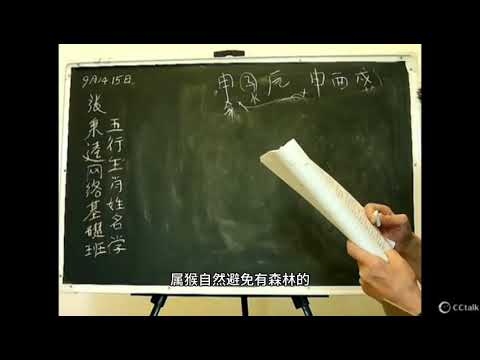 9月14.15日
申子辰 申酉戌
水
張秉遠网络基礎班
五行生肖姓名学
属猴自然避免有森林的
CCtalk